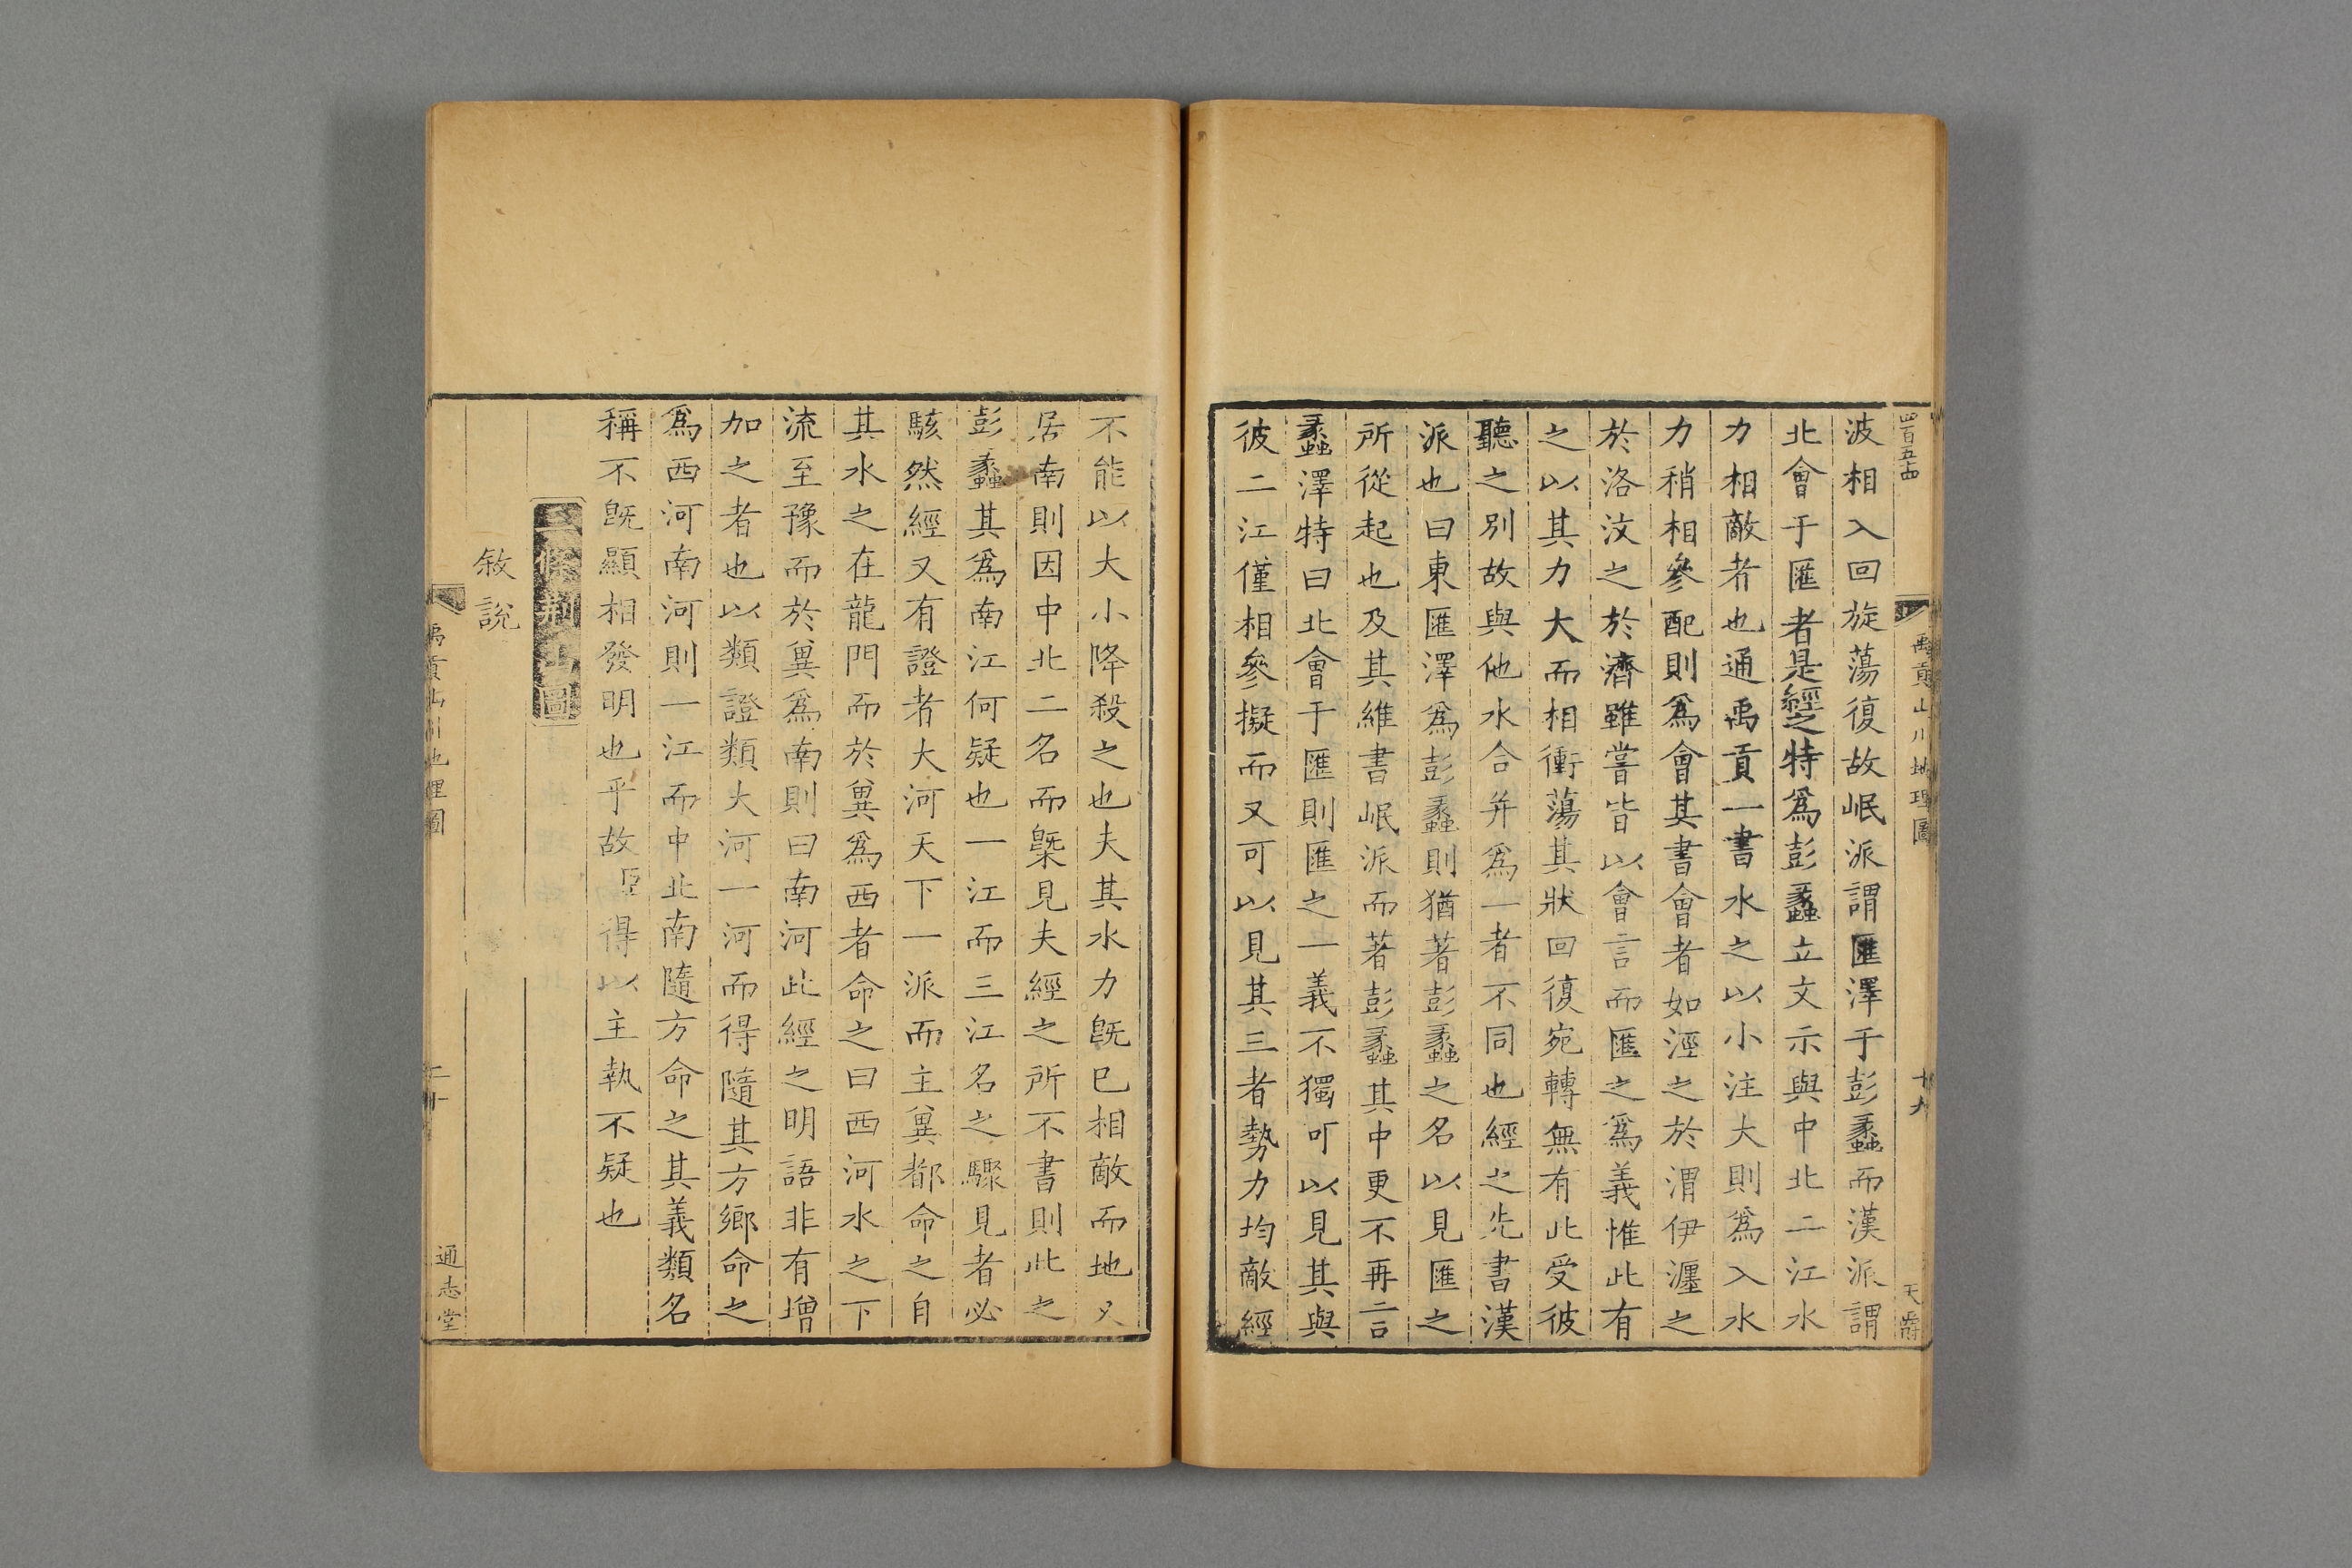 四百五十四
禹貢山川地理圖
十九
天爵
波相入回旋蕩復故岷派謂匯澤于彭蠡而漢派謂
北會于匯者是經之特爲彭蠡立文示與中北二江水
力相敵者也通禹貢一書水之以小注大則爲入水
力稍相參配則爲會其書會者如涇之於渭伊瀍之
於洛汶之於濟雖嘗皆以會言而匯之爲義惟此有
之以其力大而相衝蕩其狀回復宛轉無有此受彼
聽之別故與他水合并爲一者不同也經之先書漢
派也曰東匯澤爲彭蠡則猶著彭蠡之名以見匯之
所從起也及其維書岷派而著彭蠡其中更不再言
蠡澤特曰北會于匯則匯之一義不獨可以見其與
彼二江僅相參擬而又可以見其三者勢力均敵經
不能以大小降殺之也夫其水力旣已相敵而地又
居南則因中北二名而槩見夫經之所不書則此之
彭蠡其爲南江何疑也一江而三江名之驟見者必
駭然經又有證者大河天下一派而主兾都命之自
其水之在龍門而於兾爲西者命之曰西河水之下
流至豫而於兾爲南則曰南河此經之明語非有增
加之者也以類證類大河一河而得隨其方鄉命之
爲西河南河則一江而中北南隨方命之其義類名
稱不旣顯相發明也乎故臣得以主執不疑也
三條荆山圖
敘說
禹貢山川地理圖
二十
通志堂